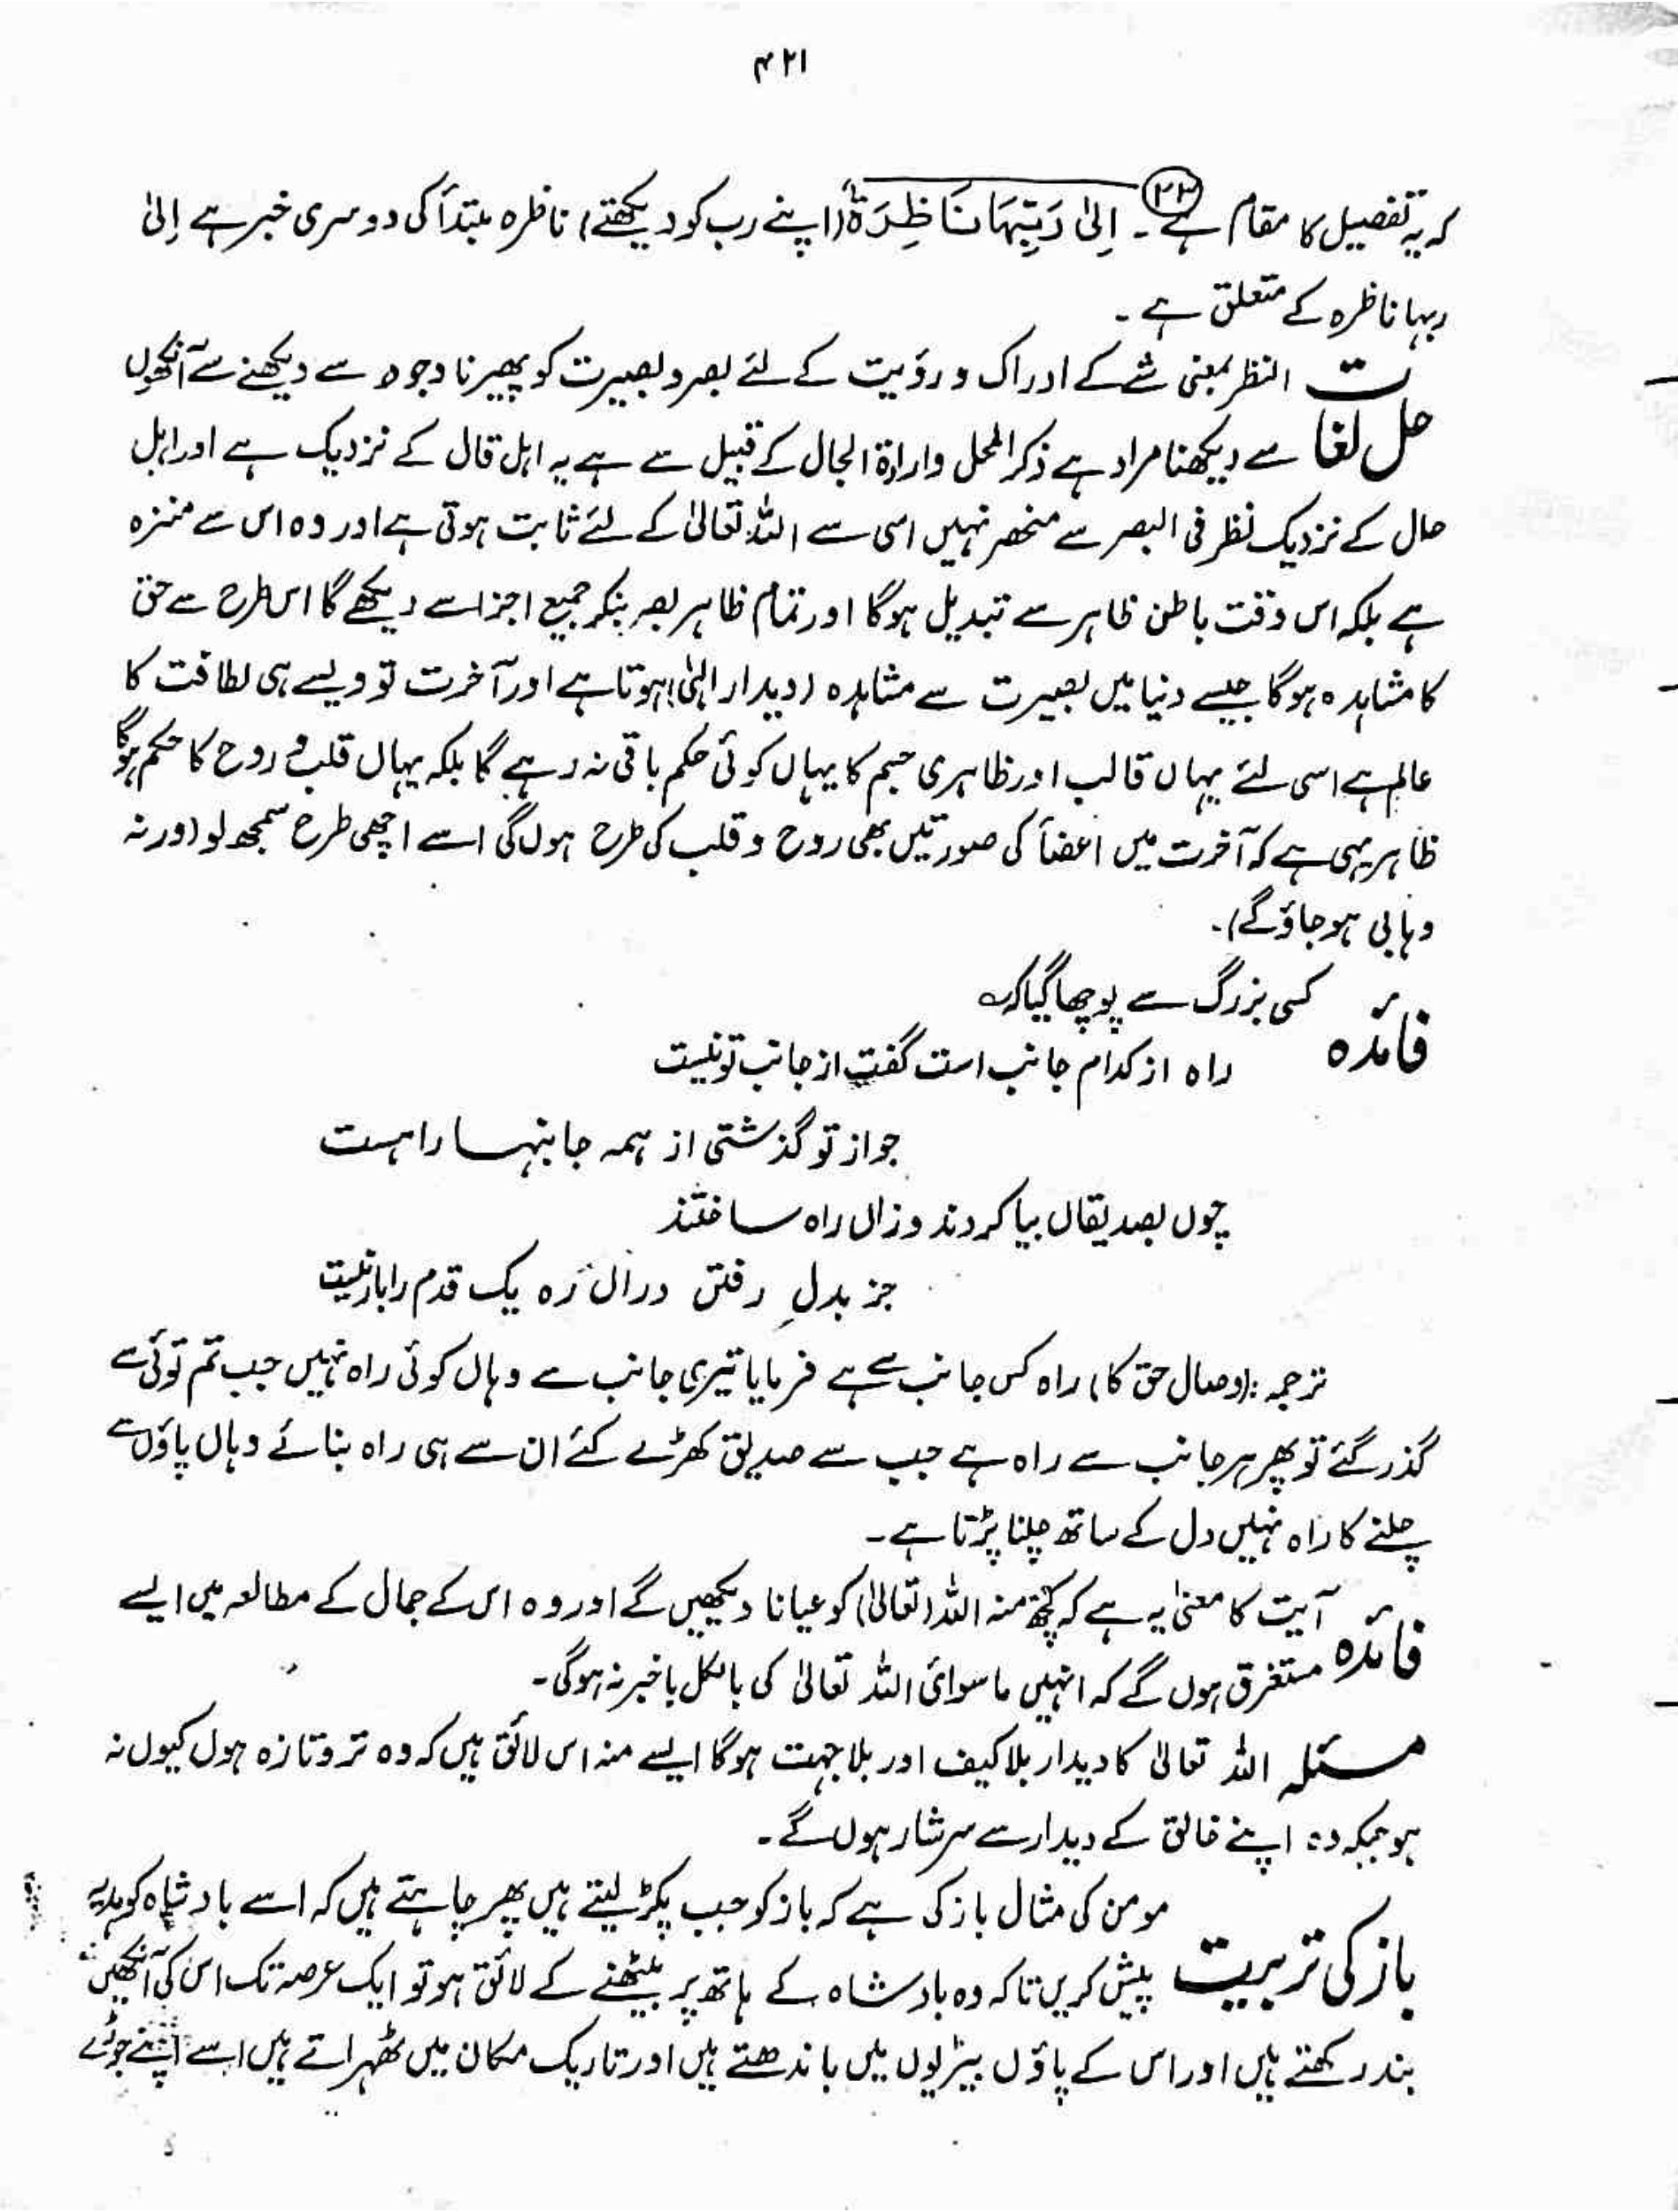 ۴۲۱
کہ یہ تفصیل کا مقام ہے۔ ۲۳ اِلیٰ رَبِّہَا نَاظِرَۃٌ (اپنے رب کو دیکھتے) ناظرہ مبتدأ کی دوسری خبر ہے اِلیٰ
ربہا ناظرہ کے متعلق ہے۔
حل لغات النظر بمعنی شے کے ادراک و رؤیت کے لئے بصر و بصیرت کو پھیرنا وجوہ سے دیکھنے سے آنکھوں
سے دیکھنا مراد ہے ذکر المحل وارادۃ الحال کے قبیل سے ہے یہ اہل قال کے نزدیک ہے اور اہل
حال کے نزدیک نظر فی البصر سے منحصر نہیں اسی سے اللہ تعالیٰ کے لئے ثابت ہوتی ہے اور وہ اس سے منزہ
ہے بلکہ اس وقت باطن ظاہر سے تبدیل ہوگا اور تمام ظاہر بصر بنکر جمیع اجزا سے دیکھے گا اس طرح سے حق
کا مشاہدہ ہوگا جیسے دنیا میں بصیرت سے مشاہدہ (دیدار الہٰی) ہوتا ہے اور آخرت تو ویسے ہی لطافت کا
عالم ہے اسی لئے یہاں قالب اور ظاہری جسم کا یہاں کوئی حکم باقی نہ رہے گا بلکہ یہاں قلب و روح کا حکم ہوگا
ظاہر یہی ہے کہ آخرت میں اعضأ کی صورتیں بھی روح و قلب کی طرح ہوں گی اسے اچھی طرح سمجھ لو (ورنہ
وہابی ہو جاؤ گے)۔
فائدہ کسی بزرگ سے پوچھا گیا کہ
راہ از کدام جانب است گفت از جانب تو نیست
جواز تو گذشتی از ہمہ جانبہا راہست
چوں بصدیقاں بپا کردند وزاں راہ ساختند
جز بدلِ رفتن دراں رہ یک قدم را باز نیست
ترجمہ: (وصال حق کا) راہ کس جانب سے ہے فرمایا تیری جانب سے وہاں کوئی راہ نہیں جب تم توئی سے
گذر گئے تو پھر ہر جانب سے راہ ہے جب سے صدیق کھڑے کئے ان سے ہی راہ بنائے وہاں پاؤں سے
چلنے کا راہ نہیں دل کے ساتھ چلنا پڑتا ہے۔
فائدہ آیت کا معنیٰ یہ ہے کہ کچھ منہ اللہ (تعالیٰ) کو عیانا دیکھیں گے اور وہ اس کے جمال کے مطالعہ میں ایسے
مستغرق ہوں گے کہ انہیں ماسوائ اللہ تعالیٰ کی بالکل باخبر نہ ہوگی۔
مسئلہ اللہ تعالیٰ کا دیدار بلا کیف اور بلا جہت ہوگا ایسے منہ اس لائق ہیں کہ وہ تروتازہ ہوں کیوں نہ
ہو جبکہ وہ اپنے خالق کے دیدار سے سرشار ہوں گے۔
باز کی تربیت مومن کی مثال باز کی ہے کہ باز کو جب پکڑ لیتے ہیں پھر چاہتے ہیں کہ اسے بادشاہ کو ہدیہ
پیش کریں تاکہ وہ بادشاہ کے ہاتھ پر بیٹھنے کے لائق ہو تو ایک عرصہ تک اس کی آنکھیں
بند رکھتے ہیں اور اس کے پاؤں بیڑیوں میں باندھتے ہیں اور تاریک مکان میں ٹھہراتے ہیں اسے اپنے جوڑے